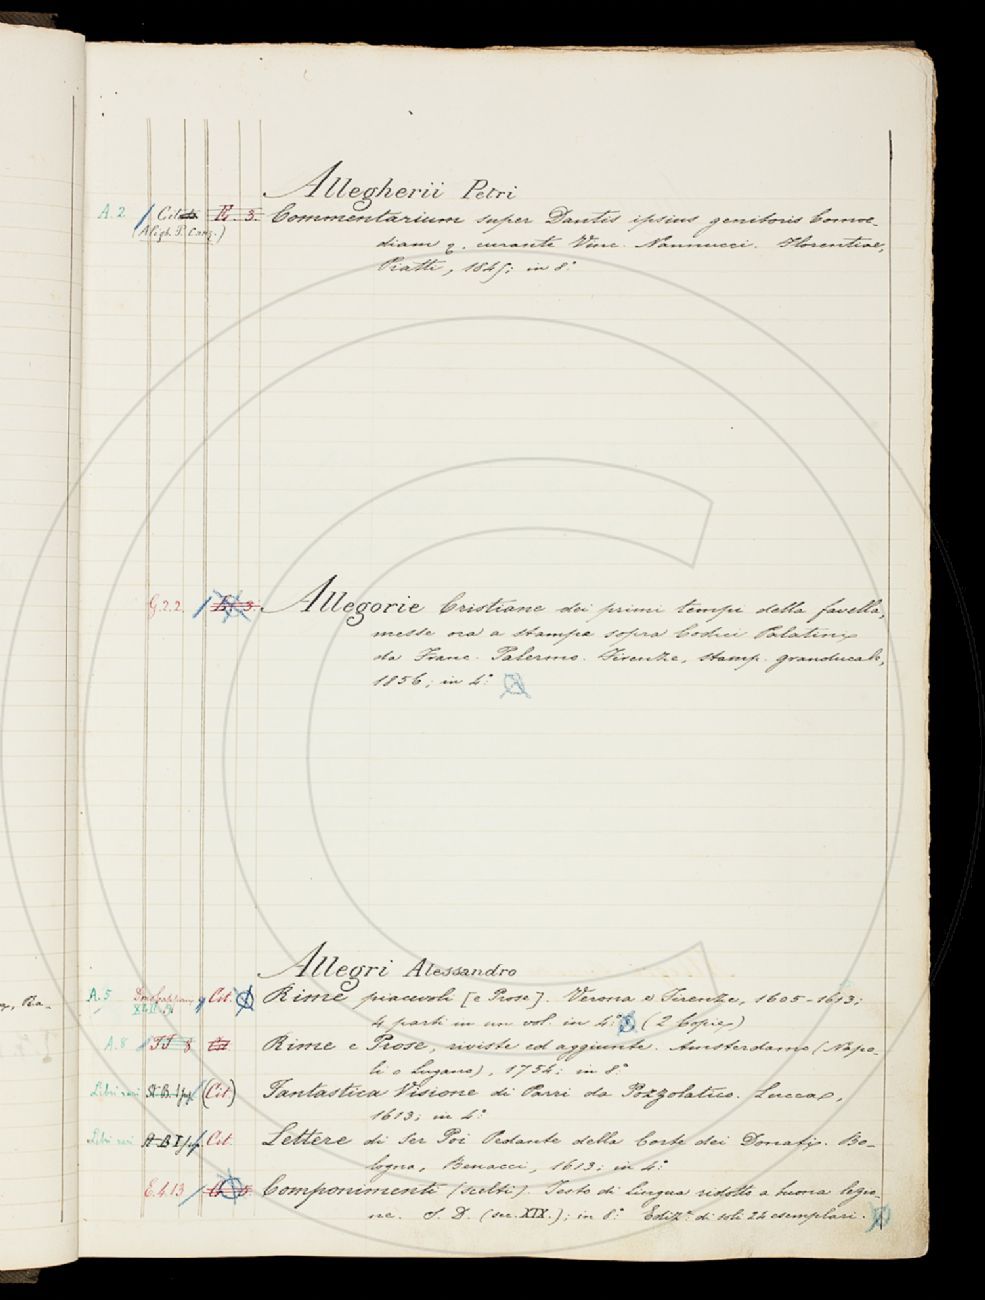 Allegherii Petri
A.2 Cit. E. 3. Commentarium super Dantis ipsius genitoris Comoe-
(Aligh. P. Cang.) diam &. curante Vinc. Nannucci. Florentiae,
Piatti, 1845; in 8.°
G.2.2. 3. Allegorie Cristiane dei primi tempi della favella,
messe ora a stampa sopra Codici Palatini
da Franc. Palermo. Firenze, stamp. granducale,
1856; in 4.°
Allegri Alessandro
Ba-
A.5 Cit. Rime piacevoli [e Prose]. Verona e Firenze, 1605-1613;
4 parti in un vol. in 4.° (2 Copie)
A.8 TT 8 Cit. Rime e Prose, riviste ed aggiunte. Amsterdamo (Napo-
li o Lugano), 1754; in 8.°
Libri rari (Cit.) Fantastica Visione di Parri da Pozzolatico. Lucca,
1613; in 4.°
Libri rari Cit. Lettere di Ser Poi Pedante della Corte dei Donati. Bo-
logna, Benacci, 1613; in 4.°
E.4.13 Componimenti (scelti). Testo di Lingua ridotto a buona lezio-
ne. S. D. (sec. XIX.); in 8.° Ediz.e di soli 24 esemplari.